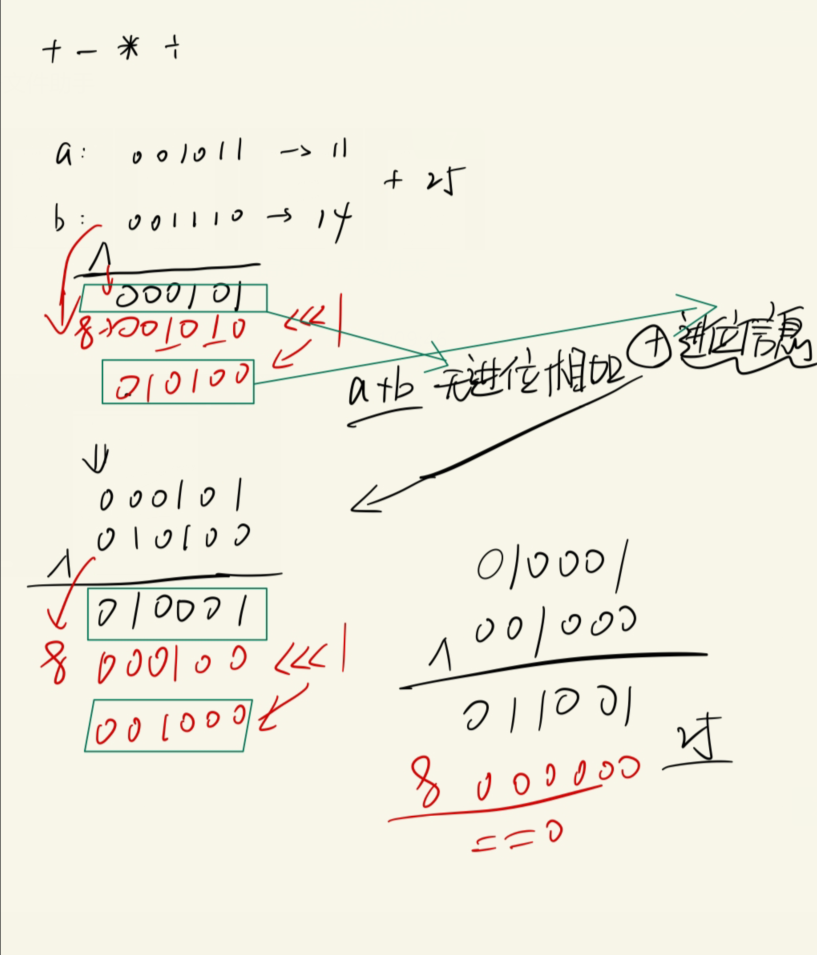 + - * ÷
a: 001011 -> 11
+ 25
b: 001110 -> 14
∧
000101
& -> 001010 <<< 1
010100
a+b 无进位相加 + 进位信息
000101
010100
∧
010001
& 000100 <<< 1
001000
010001
001000
∧
011001
25
& 000000
==0